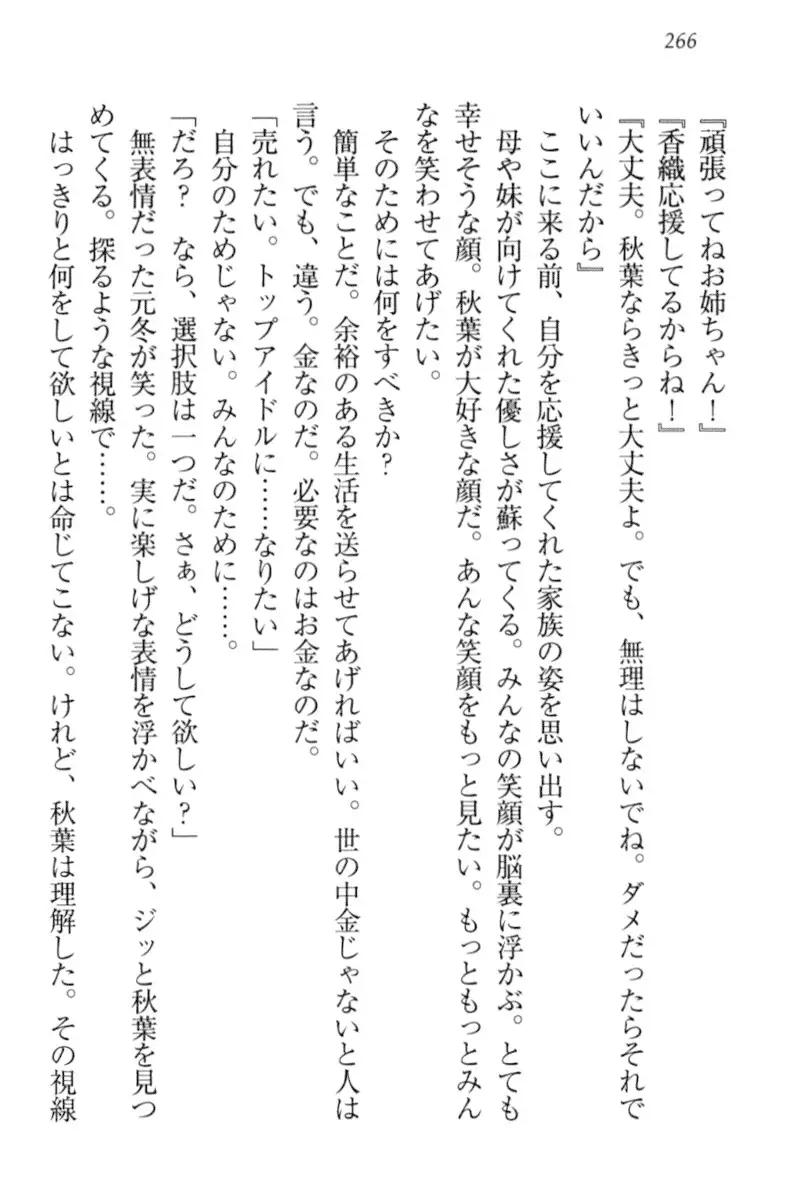 266
『頑張ってねお姉ちゃん！』
『香織応援してるからね！』
『大丈夫。秋葉ならきっと大丈夫よ。でも、無理はしないでね。ダメだったらそれで
いいんだから』
　ここに来る前、自分を応援してくれた家族の姿を思い出す。
　母や妹が向けてくれた優しさが蘇ってくる。みんなの笑顔が脳裏に浮かぶ。とても
幸せそうな顔。秋葉が大好きな顔だ。あんな笑顔をもっと見たい。もっともっとみん
なを笑わせてあげたい。
　そのためには何をすべきか？
　簡単なことだ。余裕のある生活を送らせてあげればいい。世の中金じゃないと人は
言う。でも、違う。金なのだ。必要なのはお金なのだ。
「売れたい。トップアイドルに……なりたい」
　自分のためじゃない。みんなのために……。
「だろ？　なら、選択肢は一つだ。さぁ、どうして欲しい？」
　無表情だった元冬が笑った。実に楽しげな表情を浮かべながら、ジッと秋葉を見つ
めてくる。探るような視線で……。
　はっきりと何をして欲しいとは命じてこない。けれど、秋葉は理解した。その視線